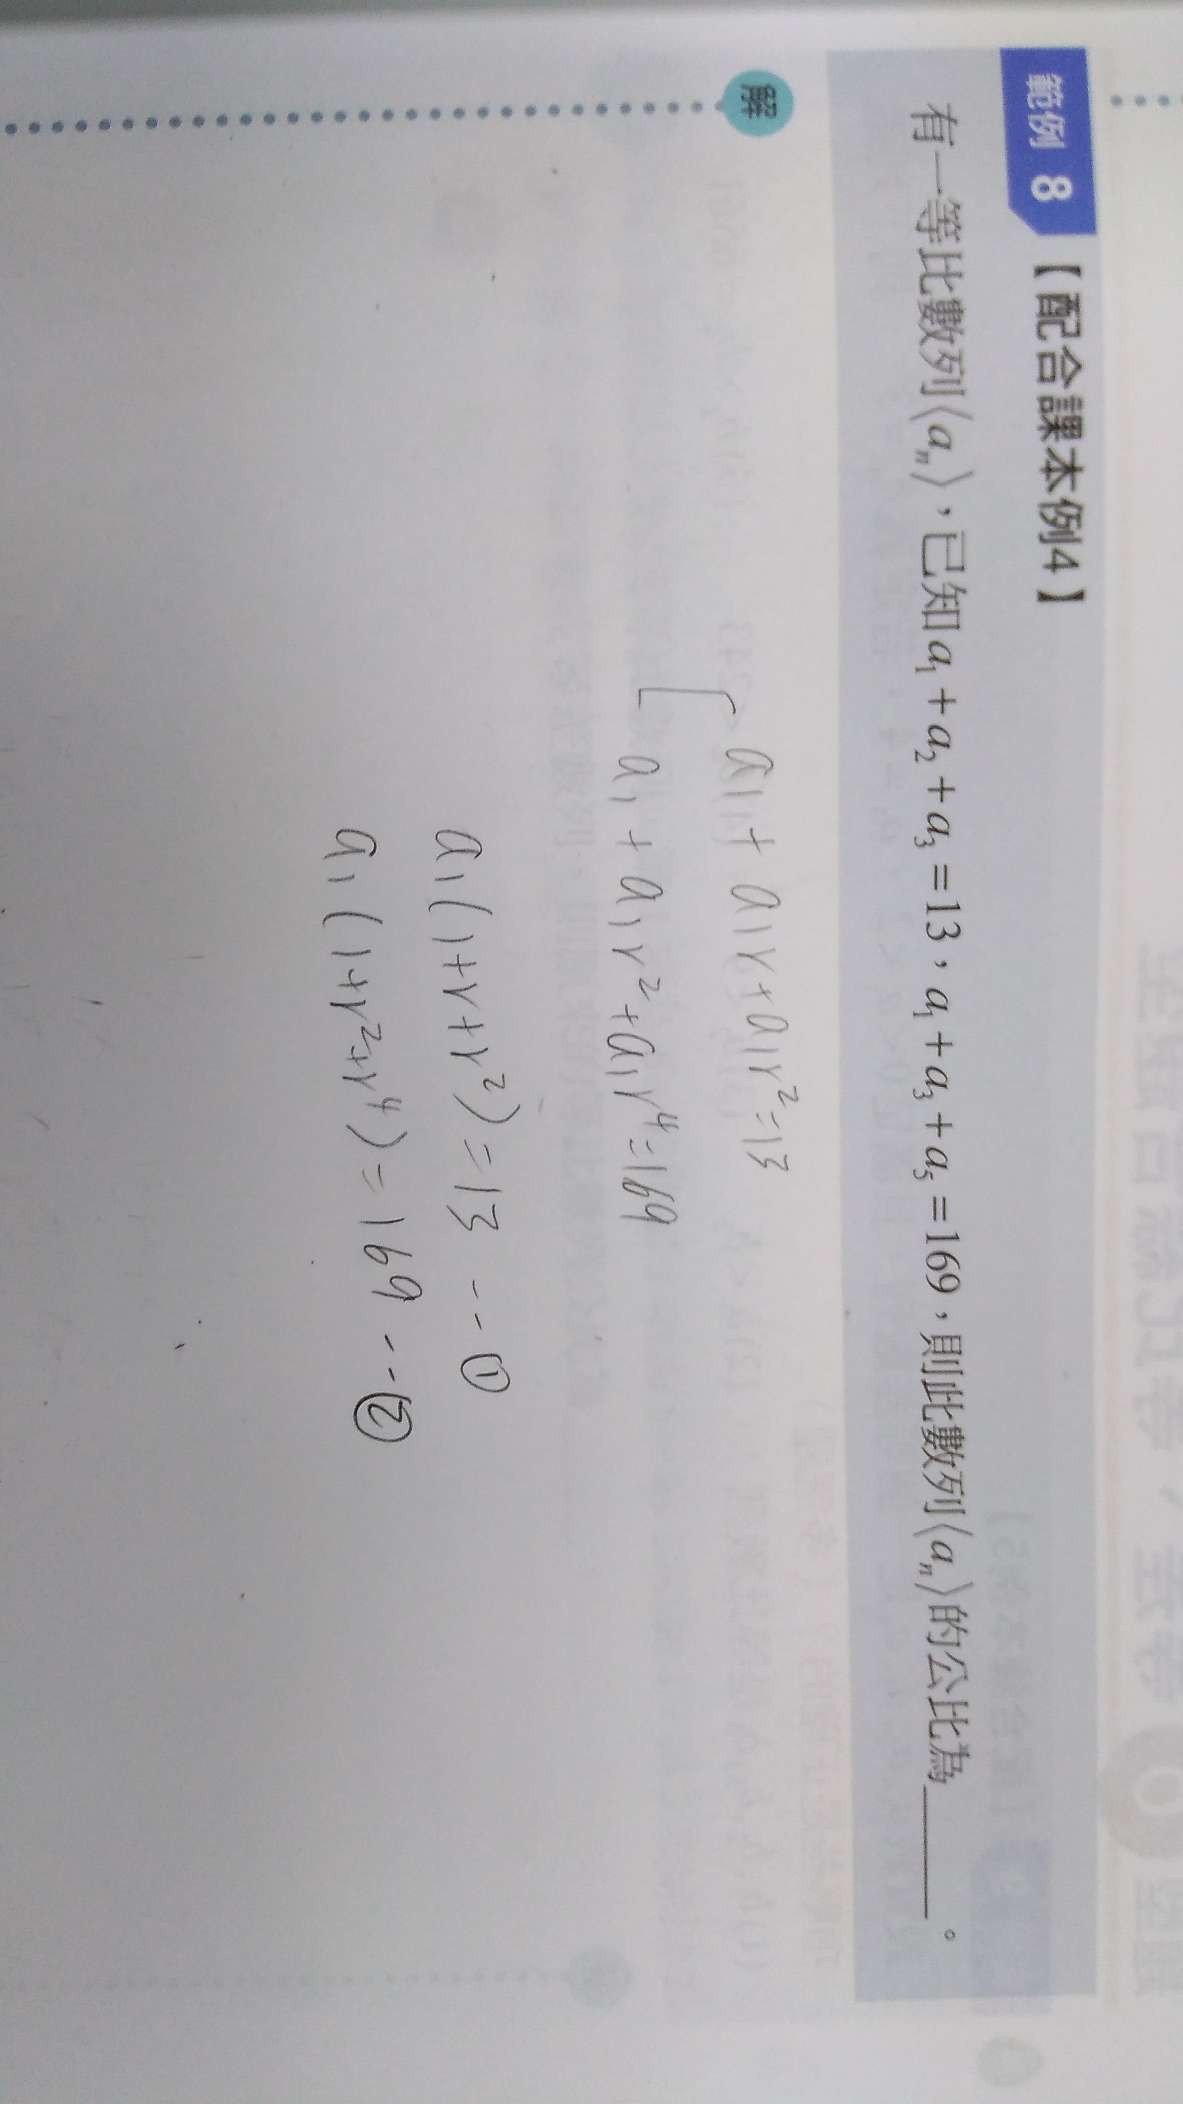 範例 8 【配合課本例4】
有一等比數列⟨aₙ⟩，已知a₁＋a₂＋a₃＝13，a₁＋a₃＋a₅＝169，則此數列⟨aₙ⟩的公比為______。
解
a₁+a₁r+a₁r²=13
a₁+a₁r²+a₁r⁴=169
a₁(1+r+r²)=13 --①
a₁(1+r²+r⁴)=169 --②